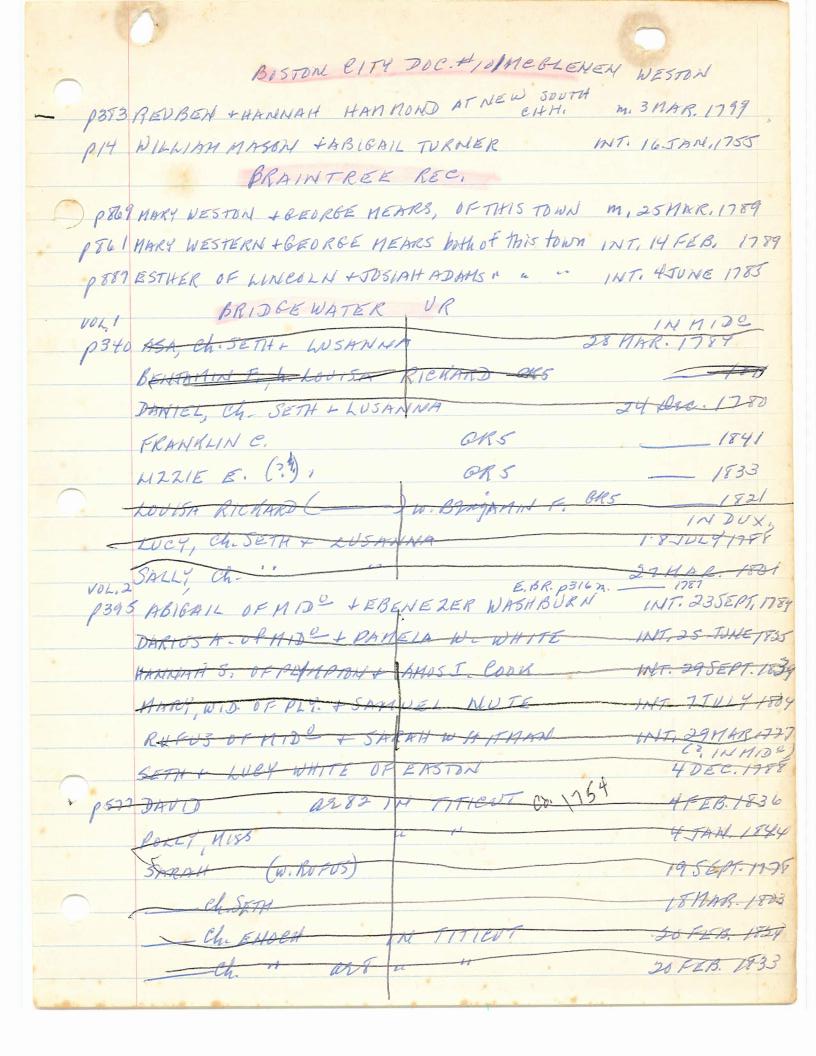 BOSTON CITY DOC. #101 McGLENEN WESTON
p383 REUBEN + HANNAH HAMMOND AT NEW SOUTH CHH. m. 3 MAR. 1799
p14 WILLIAM MASON + ABIGAIL TURNER INT. 16 JAN. 1755
BRAINTREE REC.
p869 MARY WESTON + GEORGE MEARS, OF THIS TOWN m, 25 MAR. 1789
p861 MARY WESTERN + GEORGE MEARS both of this town INT, 14 FEB. 1789
p887 ESTHER OF LINCOLN + JOSIAH ADAMS " " " INT. 4 JUNE 1785
BRIDGEWATER VR
VOL. 1 IN MIDº
p340 ASA, Ch. SETH + LUSANNA 28 MAR. 1784
BENTAMIN F., h. LOUISA RICHARD GR5
DANIEL, Ch. SETH + LUSANNA 24 Dec. 1780
FRANKLIN C. GR5 ___ 1841
LIZZIE E. (?), GR5 ___ 1833
LOUISA RICHARD (___) w. Benjamin F. GR5 ___ 1821
IN DUX,
LUCY, Ch. SETH + LUSANNA 18 JULY 1788
SALLY, Ch. " " 27 MAR. 1801
VOL. 2 E.BR. p316 m. ___ 1787
p395 ABIGAIL OF MIDº + EBENEZER WASHBURN INT. 23 SEPT, 1784
DARIUS A. OF MIDº + PAMELA W. WHITE INT, 25 JUNE 1835
HANNAH S. OF PLYMPTON + AMOS I. COOK INT. 29 SEPT. 1839
MARY, W.D. OF PLY. + SAMUEL NUTE INT. 7 JULY 1804
RUFUS OF MIDº + SARAH WHITMAN INT, 29 MAR. 1777
(?, IN MIDº)
SETH + LUCY WHITE OF EASTON 4 DEC. 1788
p577 DAVID ae 82 IN TITICUT Ca. 1754 4 FEB. 1836
POLLY, MISS " " 4 JAN. 1844
SARAH (w. RUFUS) 19 SEPT. 1778
___ Ch. SETH 18 MAR. 1803
___ Ch. ENOCH IN TITICUT 20 FEB. 1824
___ Ch. " ae 8 " " 20 FEB. 1833